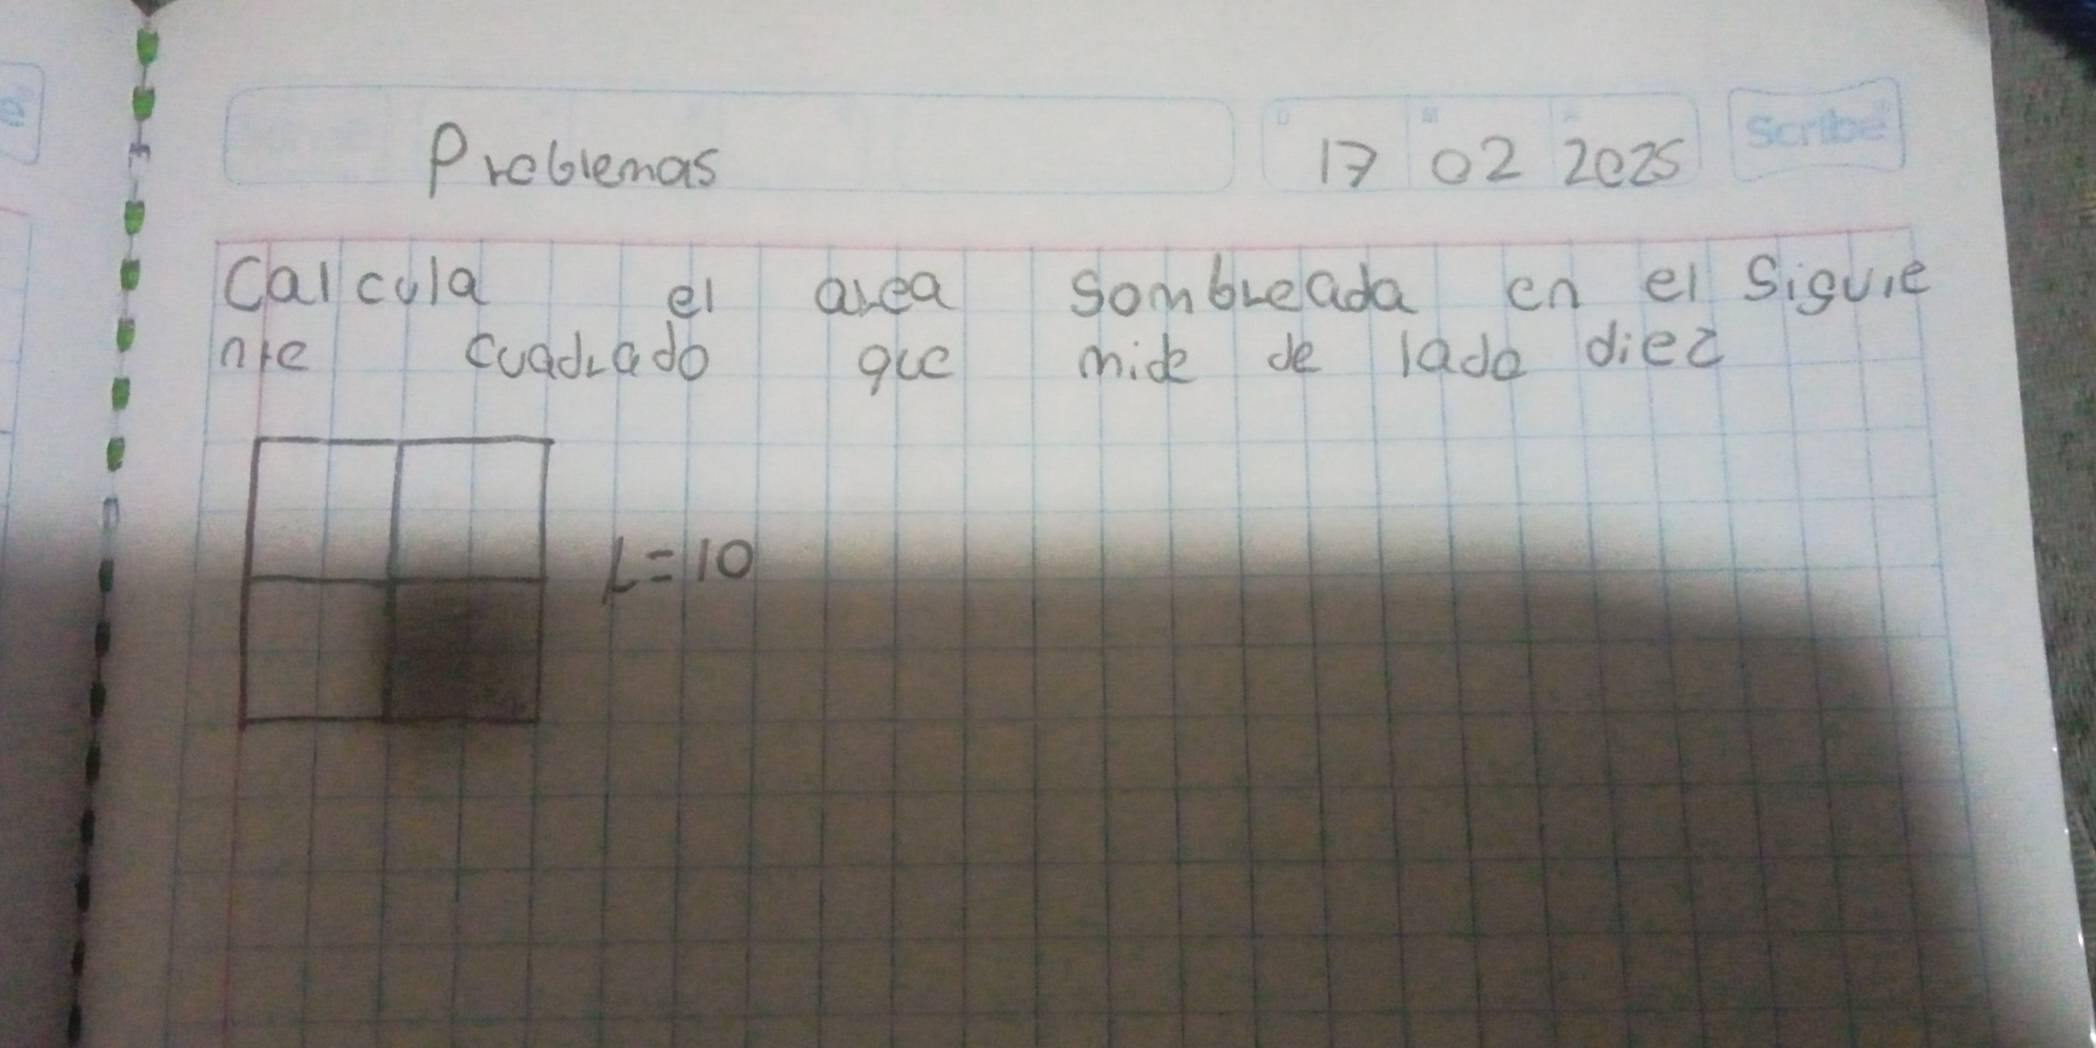 Problemas
17 02 2025
Scribe
Calcula el area sombreada en el siguie
nte cuadrado que mide de lado diez
L=10